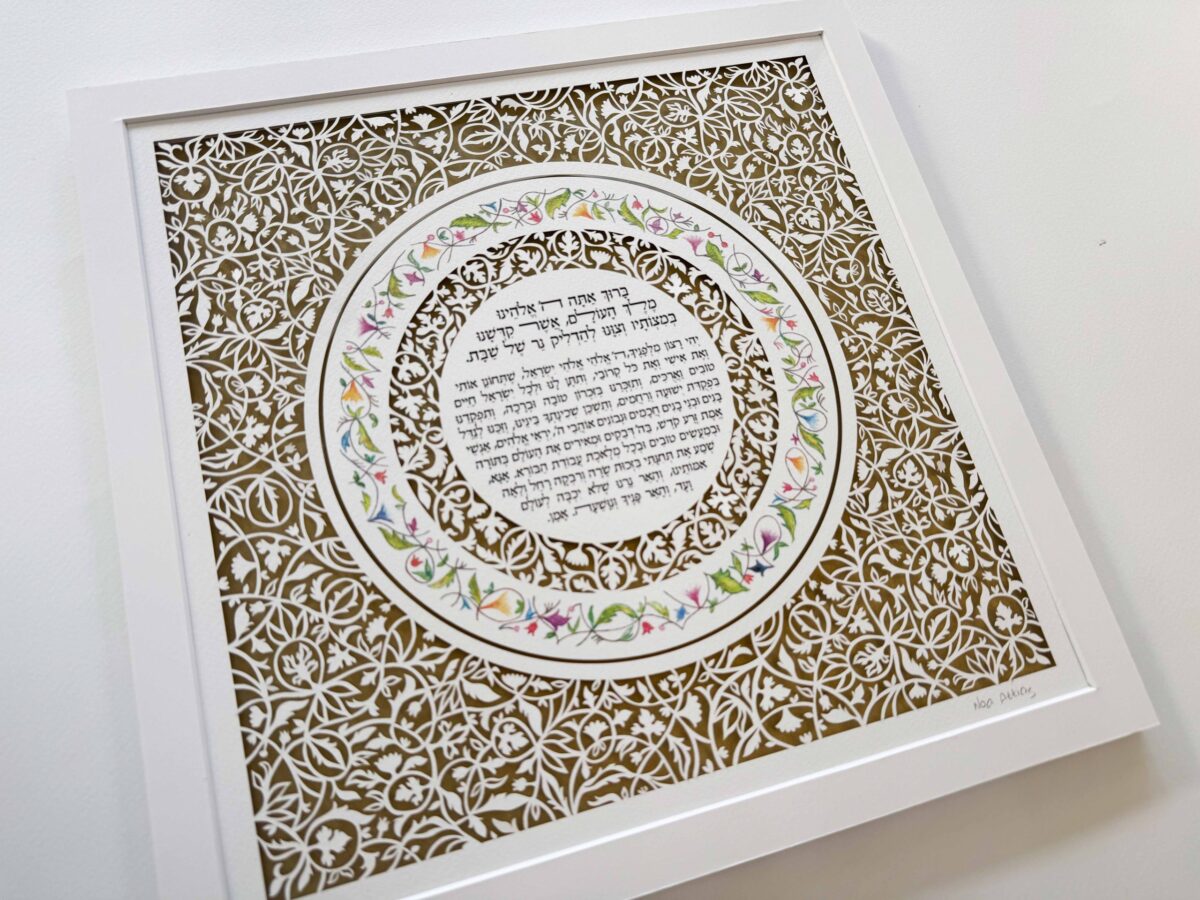 בָּרוּךְ אַתָּה ה' אֱלֹהֵינוּ
מֶלֶךְ הָעוֹלָם, אֲשֶׁר קִדְּשָׁנוּ
בְּמִצְוֹתָיו וְצִוָּנוּ לְהַדְלִיק נֵר שֶׁל שַׁבָּת.
יְהִי רָצוֹן מִלְּפָנֶיךָ, ה' אֱלֹהַי אֱלֹהֵי יִשְׂרָאֵל, שֶׁתְּחוֹנֵן אוֹתִי
וְאֶת אִישִׁי וְאֶת כֹּל קְרוֹבַי, וְתִתֵּן לָנוּ וּלְכָל יִשְׂרָאֵל חַיִּים
טוֹבִים וַאֲרֻכִּים, וְתִזְכְּרֵנוּ בְּזִכְרוֹן טוֹבָה וּבְרָכָה, וְתִפְקְדֵנוּ
בִּפְקֻדַּת יְשׁוּעָה וְרַחֲמִים, וְתַשְׁכֵּן שְׁכִינָתְךָ בֵּינֵינוּ, וְזַכֵּנוּ לְגַדֵּל
בָּנִים וּבְנֵי בָנִים חֲכָמִים וּנְבוֹנִים אוֹהֲבֵי ה', יִרְאֵי אֱלֹהִים, אַנְשֵׁי
אֱמֶת זֶרַע קֹדֶשׁ, בַּה' דְּבֵקִים וּמְאִירִים אֶת הָעוֹלָם בַּתּוֹרָה
וּבְמַעֲשִׂים טוֹבִים וּבְכָל מְלֶאכֶת עֲבוֹדַת הַבּוֹרֵא, אָנָּא,
שְׁמַע אֶת תְּחִנָּתִי בִּזְכוּת שָׂרָה וְרִבְקָה רָחֵל וְלֵאָה
אִמּוֹתֵינוּ, וְהָאֵר נֵרֵנוּ שֶׁלֹּא יִכְבֶּה לְעוֹלָם
וָעֶד, וְהָאֵר פָּנֶיךָ וְנִוָּשֵׁעָה, אָמֵן.
Noa Attias